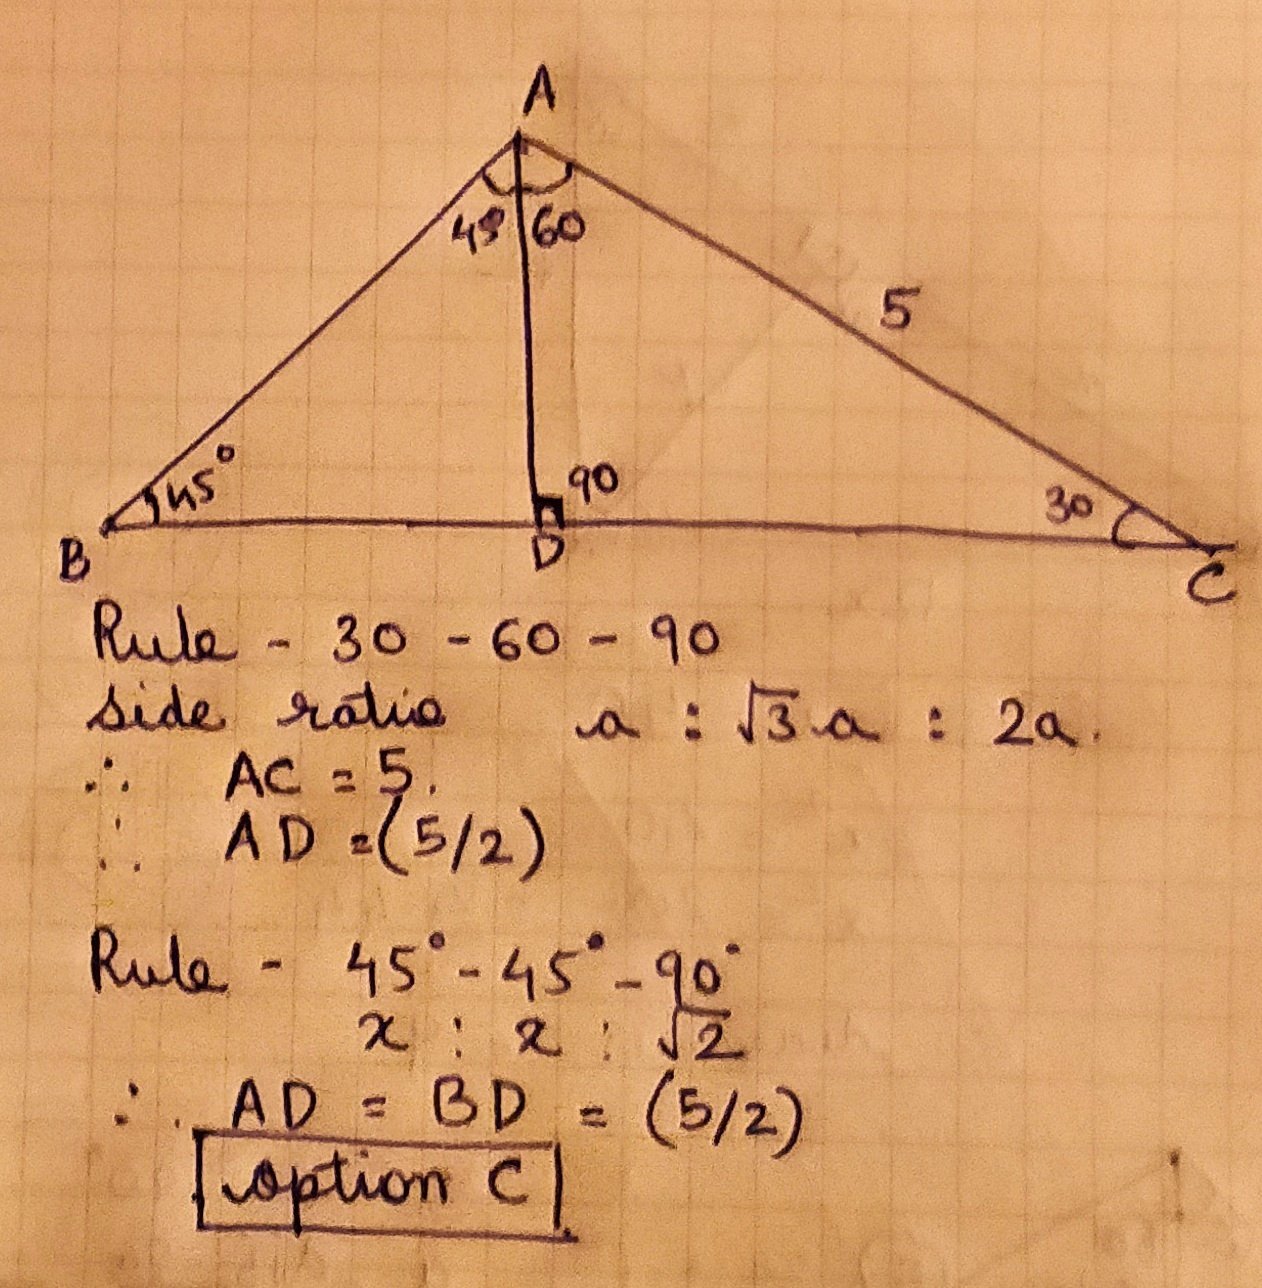 A
45° 60
5
45°
90
30
B
D
C
Rule - 30 - 60 - 90
side ratio a : √3 a : 2a.
∴ AC = 5.
∴ AD = (5/2)
Rule - 45° - 45° - 90°
x : x : √2
∴ AD = BD = (5/2)
option C